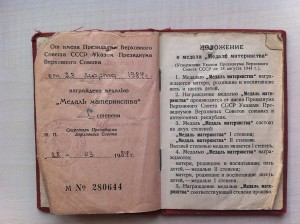 От имени Президиума Верховного
Совета СССР Указом Президиума
Верховного Совета
от 23 марта 1987 г.
награждена медалью
„Медаль материнства“
степени
М. П.
Секретарь Президиума
Верховного Совета
28 03 1987 г.
М № 280644
ПОЛОЖЕНИЕ
о медали „Медаль материнства“
(Утверждено Указом Президиума Верховного
Совета СССР от 18 августа 1944 г.)
1. Медалью „Медаль материнства“ награждаются
матери, родившие и воспитавшие пять
и шесть детей.
2. Награждение медалью „Медаль материнства“
производится от имени Президиума
Верховного Совета СССР Указами
Верховных Советов
3. Медаль „Медаль материнства“ состоит
из двух степеней:
„Медаль материнства“ I степени,
„Медаль материнства“ II степени.
Высшей степенью медали является I степень.
4. Медалью „Медаль материнства“ награждаются:
матери, родившие и воспитавшие пять
детей, — медалью II степени;
матери, родившие и воспитавшие шесть
детей, — медалью I степени.
5. Награждение медалью „Медаль материнства“
соответствующей степени